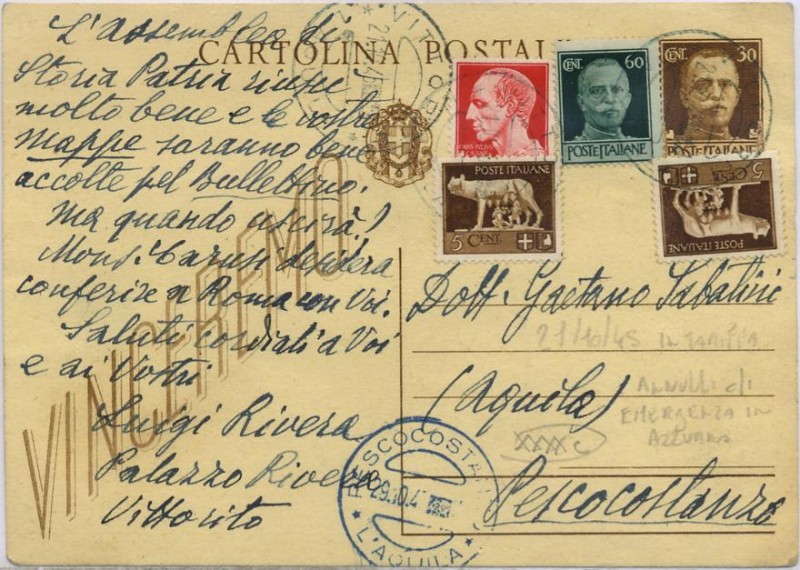 CARTOLINA POSTALE
L'Assemblea di
Storia Patria riuscì
molto bene e le vostre
mappe saranno bene
accolte pel Bullettino.
Ma quando uscirà!
Mons. Carusi desidera
conferire a Roma con Voi.
Saluti cordiali a Voi
e ai Vostri.
Luigi Rivera
Palazzo Rivera
Vittorito
VINCEREMO
CENT. 60
POSTE ITALIANE
CENT. 30
POSTE ITALIANE
POSTE ITALIANE
5 CENT.
5 CENT.
POSTE ITALIANE
Dott. Gaetano Sabatini
21/10/45 IN TARIFFA
(Aquila)
ANNULLI di
EMERGENZA IN
AZZURRO
Pescocostanzo
PESCOCOSTAN
29.10.4
* L'AQUILA *
VITTOR